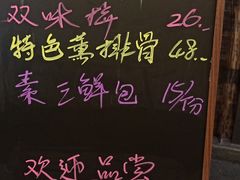 双味 26..
特色薰排骨 48..
素三鲜包 15/份
欢师品赏